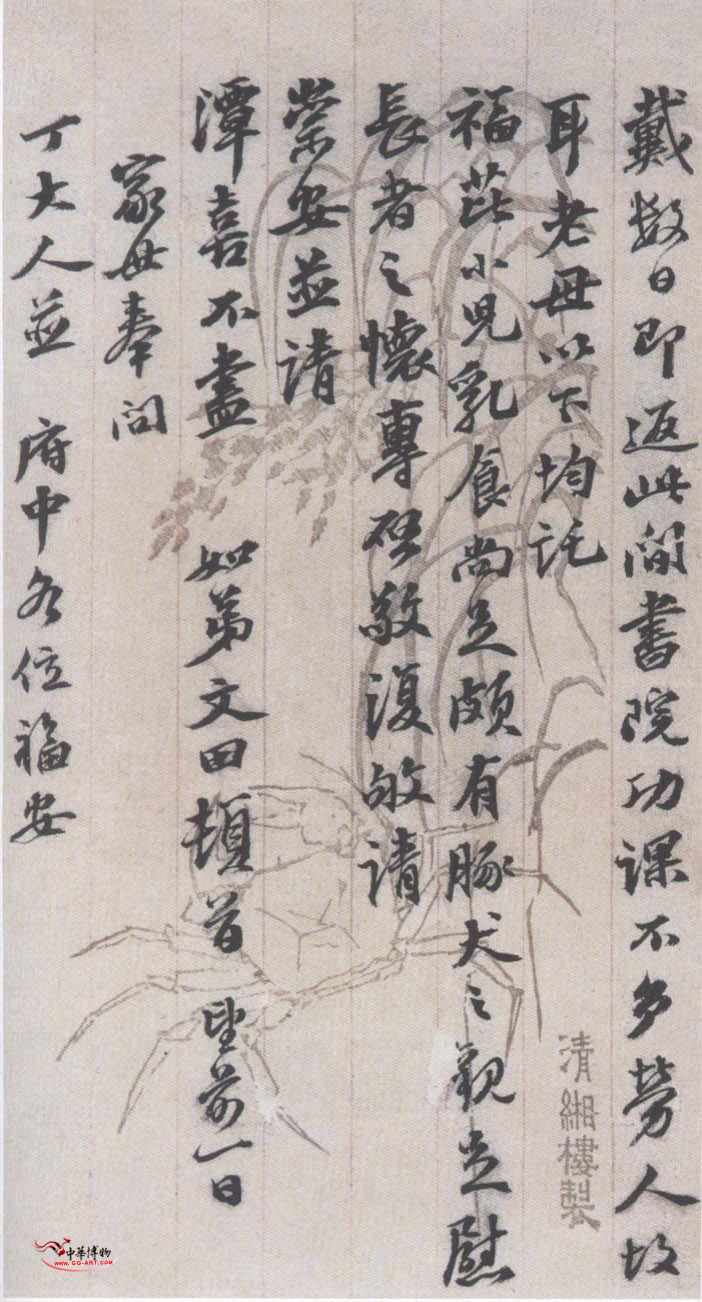 戴數日即返此間書院功課不多勞人故
耳老母以下均託
福芘小兒乳食尚足頗有豚犬之觀足慰
長者之懷專啓敬復敬請
崇安並請
潭喜不盡 如弟文田頓首 望前一日
家母奉問
丁大人並 府中各位福安
清緗樓製
中華博物
WWW.GG-ART.COM